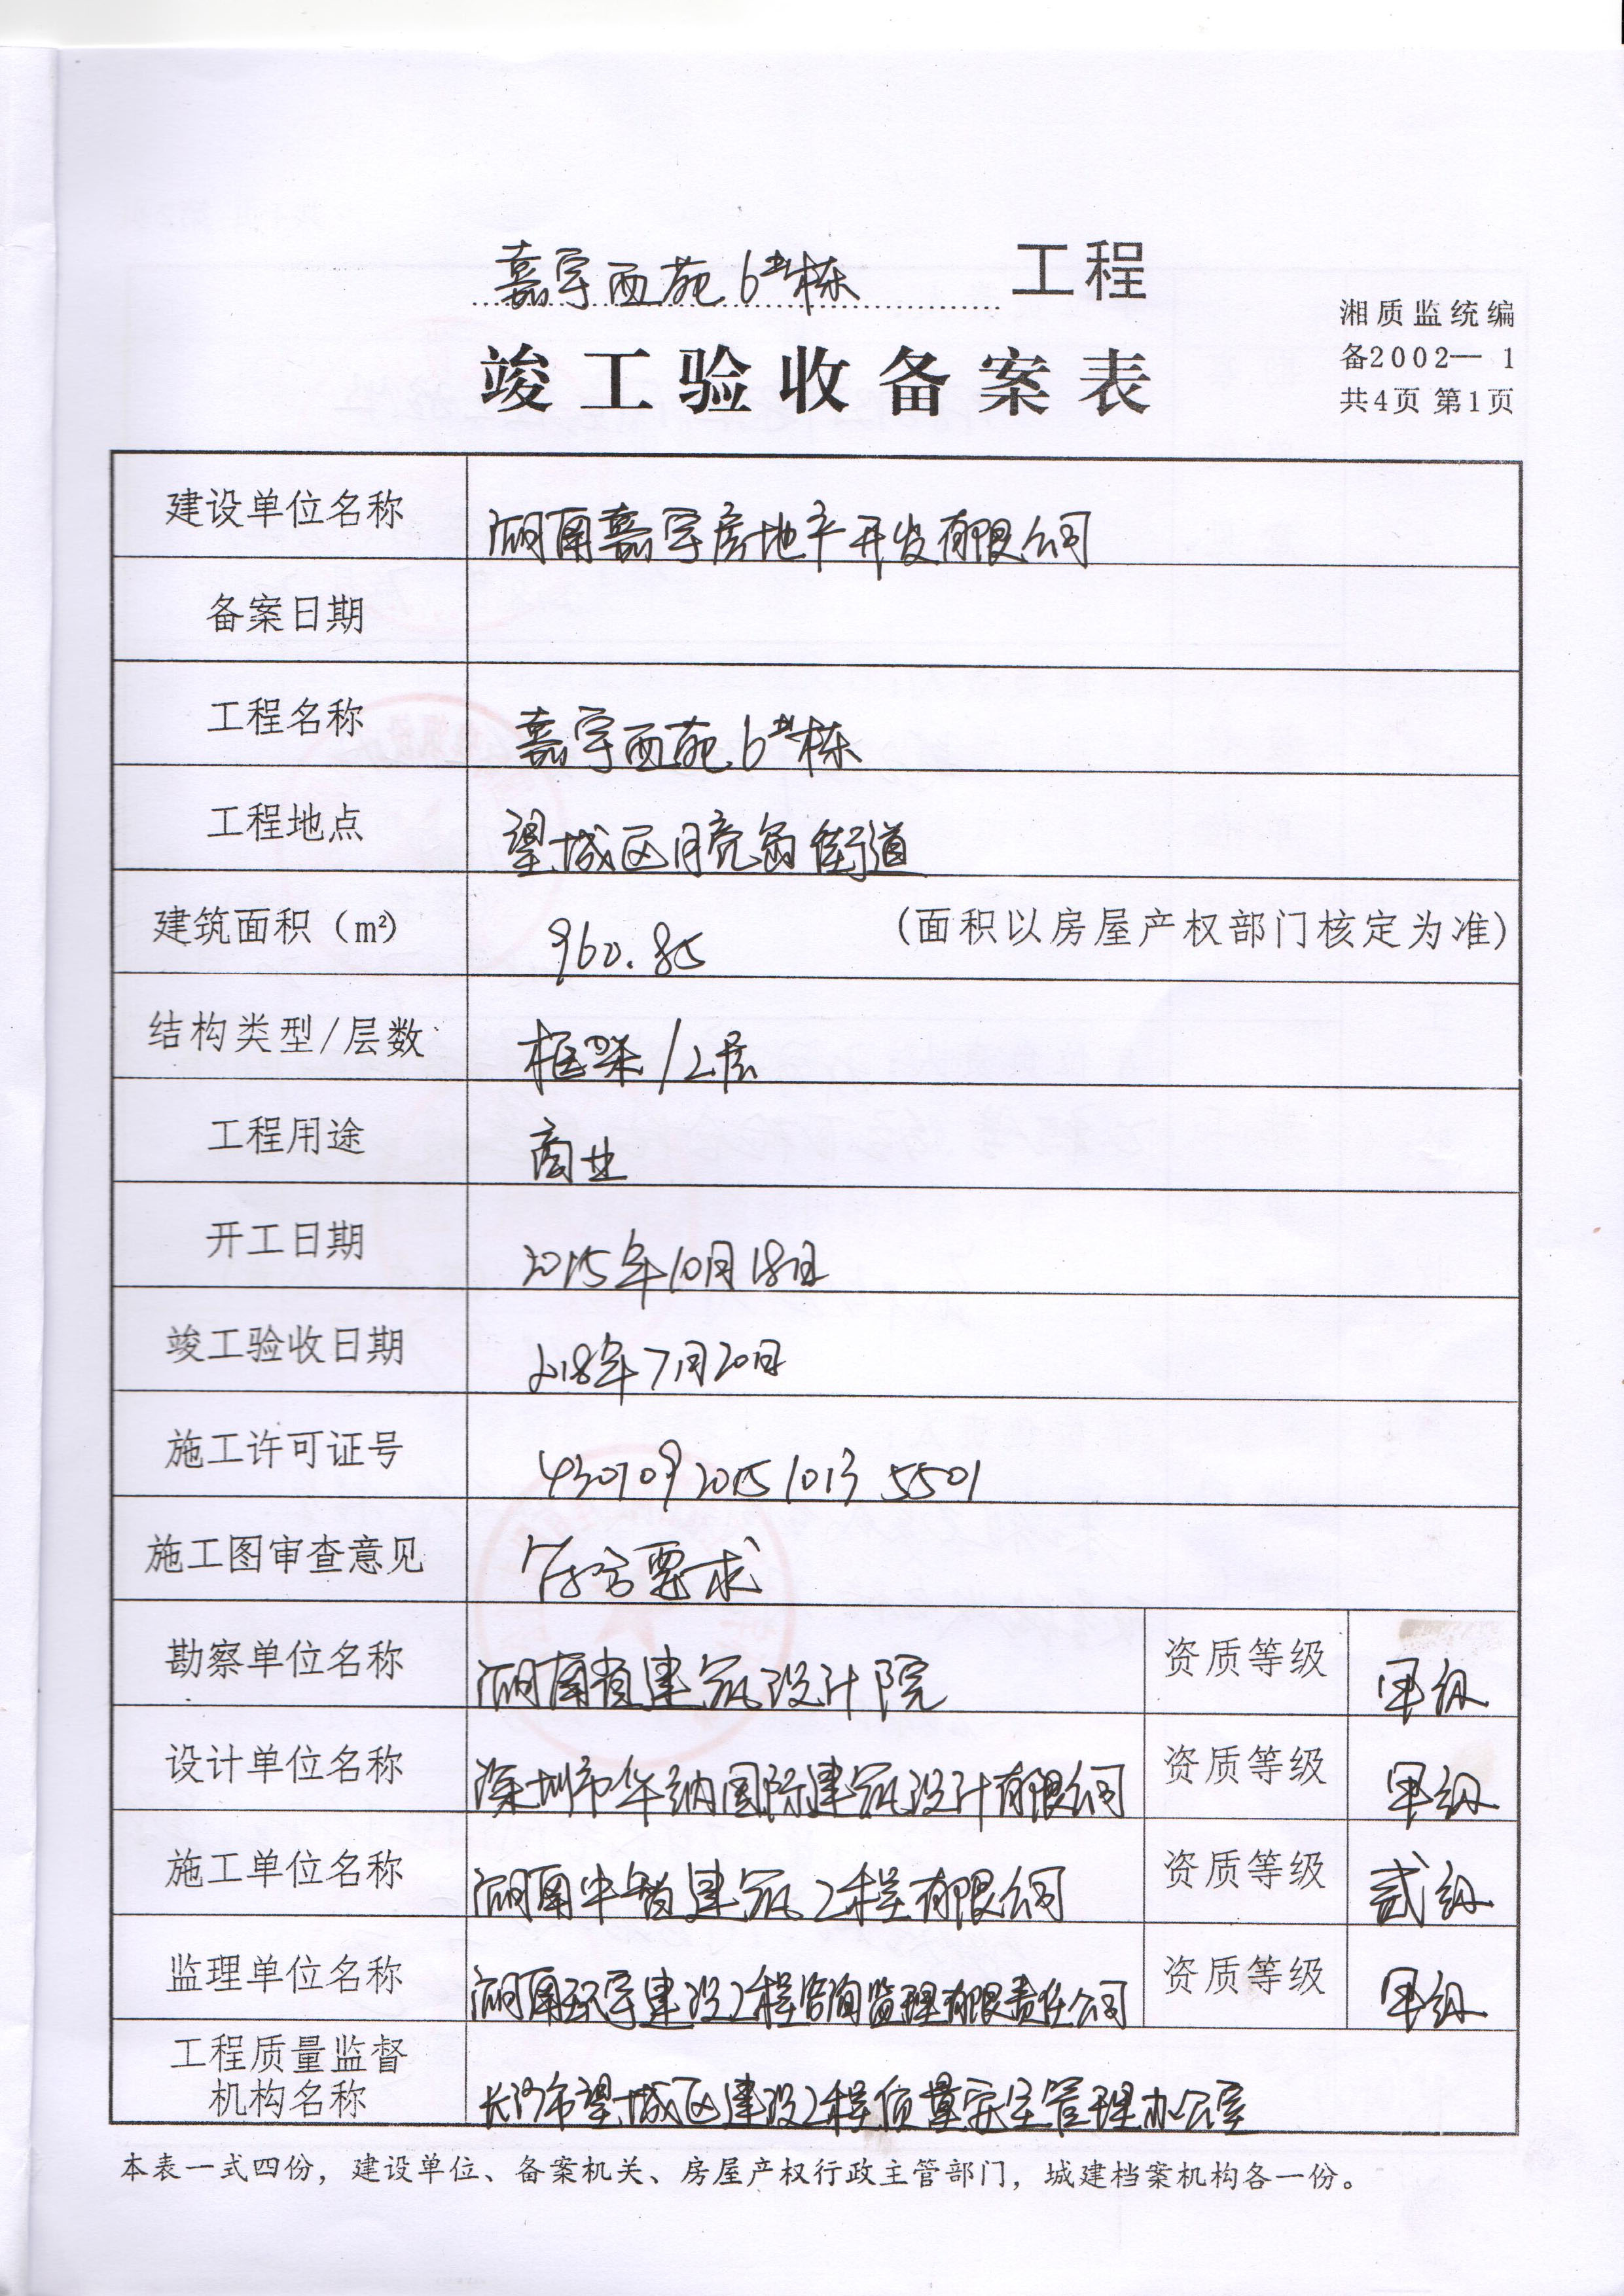 嘉宇西苑6#栋 工程
竣工验收备案表
湘质监统编
备2002—1
共4页 第1页
建设单位名称 湖南嘉宇房地产开发有限公司
备案日期
工程名称 嘉宇西苑6#栋
工程地点 望城区月亮岛街道
建筑面积（m²） 960.85 （面积以房屋产权部门核定为准）
结构类型/层数 框架/2层
工程用途 商业
开工日期 2015年10月18日
竣工验收日期 2018年7月20日
施工许可证号 430109201510135501
施工图审查意见 符合要求
勘察单位名称 湖南省建筑设计院 资质等级 甲级
设计单位名称 深圳市华纳国际建筑设计有限公司 资质等级 甲级
施工单位名称 湖南中智建筑工程有限公司 资质等级 贰级
监理单位名称 湖南环宇建设工程咨询监理有限责任公司 资质等级 甲级
工程质量监督
机构名称 长沙市望城区建设工程质量安全管理办公室
本表一式四份，建设单位、备案机关、房屋产权行政主管部门，城建档案机构各一份。